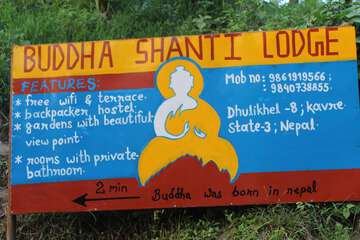 BUDDHA SHANTI LODGE
FEATURES:
* free wifi & terrace.
* backpacker hostel.
* gardens with beautiful
view point.
* rooms with private
bathroom.
Mob no: 9861919566;
: 9840738855.
Dhulikhel-8; kavre
State-3; Nepal.
2 min
Buddha was born in nepal